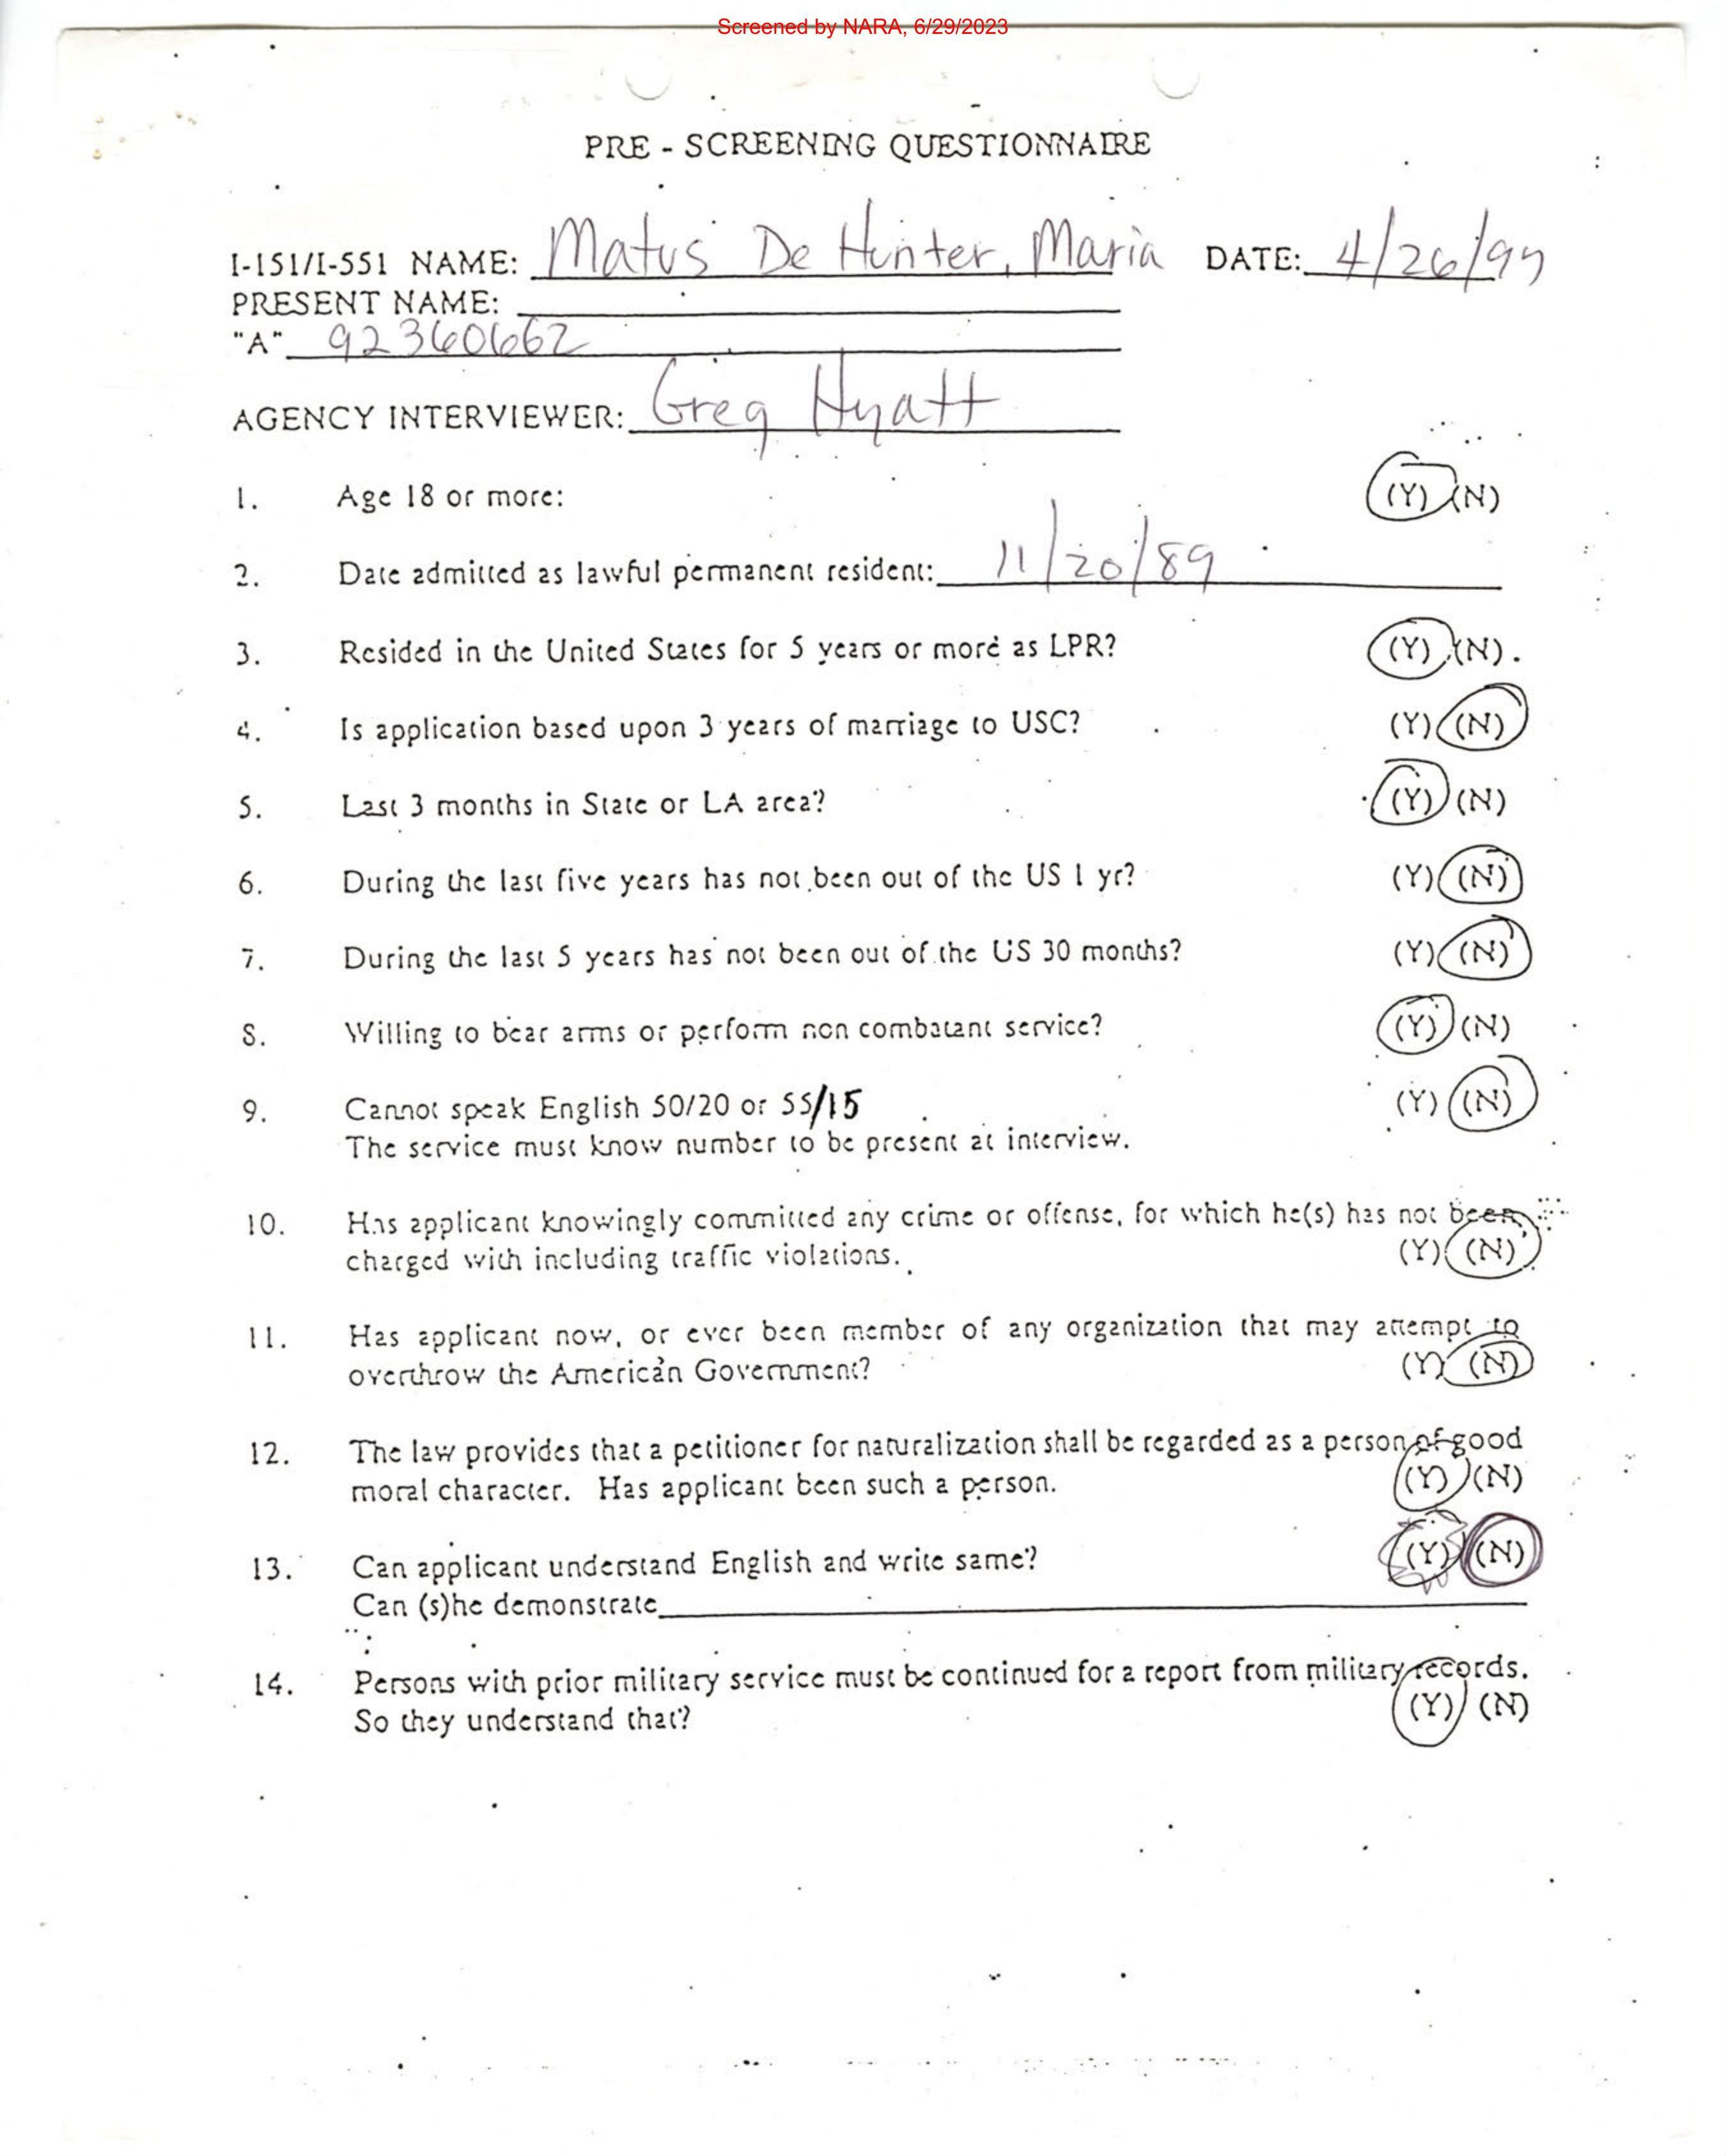 Screened by NARA, 6/29/2023
PRE - SCREENING QUESTIONNAIRE
I-151/I-551 NAME: Matus De Hunter, Maria DATE: 4/26/97
PRESENT NAME:
"A" 92360662
AGENCY INTERVIEWER: Greg Hyatt
1. Age 18 or more: (Y) (N)
2. Date admitted as lawful permanent resident: 11/20/89
3. Resided in the United States for 5 years or more as LPR? (Y) (N).
4. Is application based upon 3 years of marriage to USC? (Y) (N)
5. Last 3 months in State or LA area? (Y) (N)
6. During the last five years has not been out of the US 1 yr? (Y) (N)
7. During the last 5 years has not been out of the US 30 months? (Y) (N)
8. Willing to bear arms or perform non combatant service? (Y) (N)
9. Cannot speak English 50/20 or 55/15 (Y) (N)
The service must know number to be present at interview.
10. Has applicant knowingly committed any crime or offense, for which he(s) has not been
charged with including traffic violations. (Y) (N)
11. Has applicant now, or ever been member of any organization that may attempt to
overthrow the American Government? (Y) (N)
12. The law provides that a petitioner for naturalization shall be regarded as a person of good
moral character. Has applicant been such a person. (Y) (N)
13. Can applicant understand English and write same? (Y) (N)
Can (s)he demonstrate
14. Persons with prior military service must be continued for a report from military records.
So they understand that? (Y) (N)